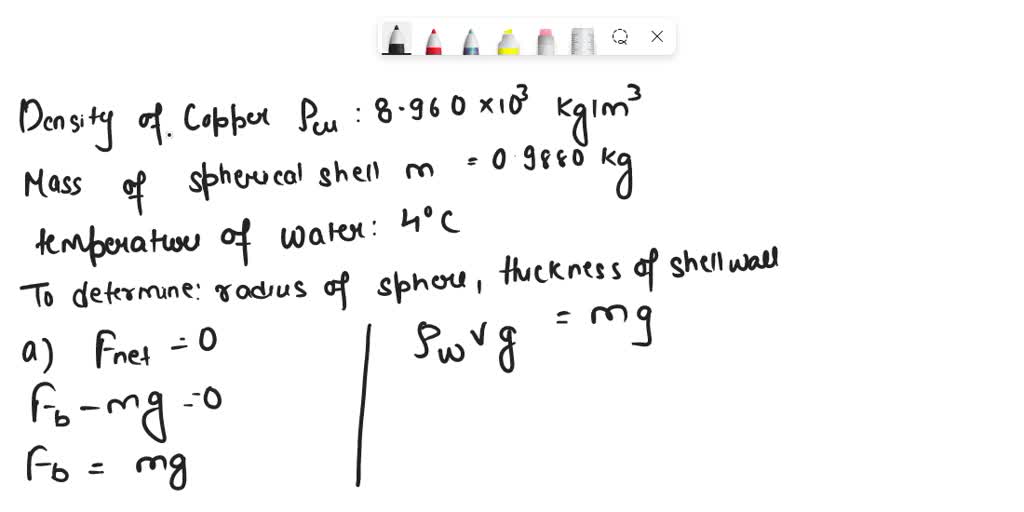 Density of. Copper ρcu : 8.960 ×10³ kg/m³
Mass of spherical shell m = 0.9880 kg
temperature of water: 4°C
To determine: radius of sphere, thickness of shell wall
a) Fnet = 0
Fb - mg = 0
Fb = mg
ρw v g = mg